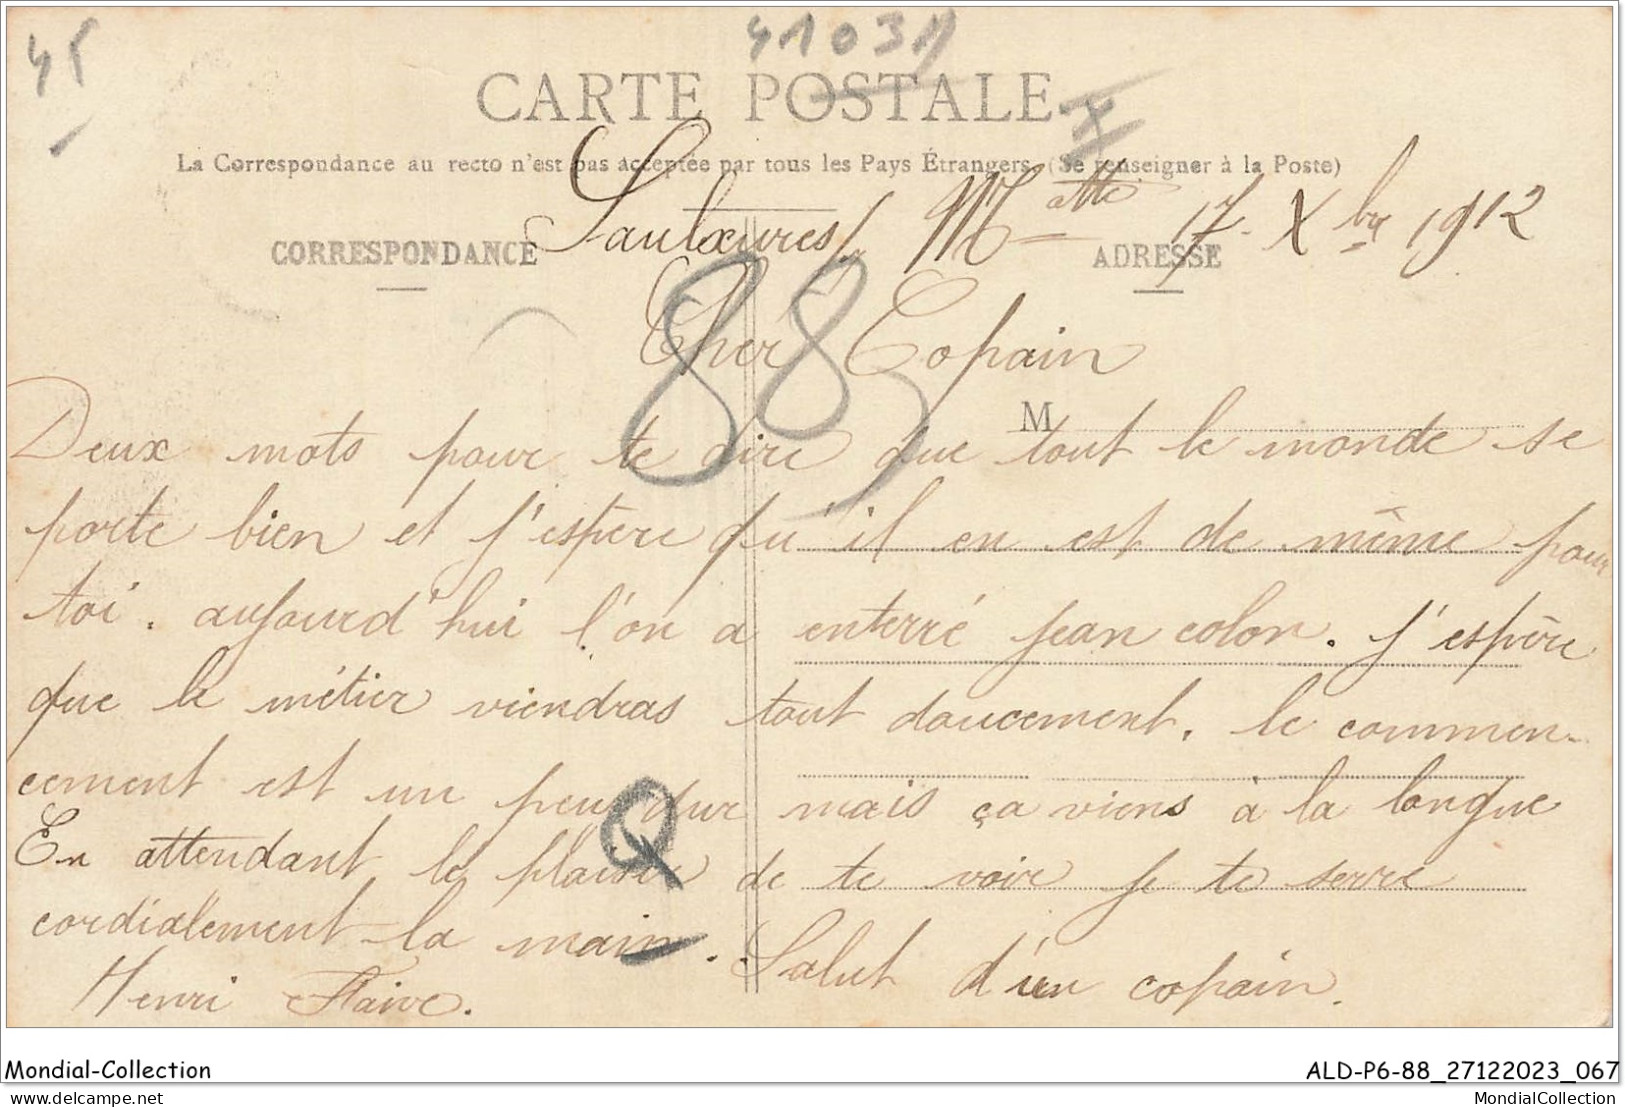 45
41031
CARTE POSTALE
La Correspondance au recto n'est pas acceptée par tous les Pays Étrangers. (Se renseigner à la Poste)
Saulxures s/ Mtte 17 Xbre 1912
CORRESPONDANCE
ADRESSE
88
Cher Copain
M
Deux mots pour te dire que tout le monde se
porte bien et j'espère qu'il en est de même pour
toi. aujourd'hui l'on a enterré jean colon. j'espère
que le métier viendras tout doucement. le commen-
cement est un peu dur mais ça viens à la longue
En attendant le plaisir de te voir je te serre
cordialement la main. Salut d'un copain.
Henri Flaive.
Mondial-Collection
ALD-P6-88_27122023_067
delcampe.net
MondialCollection